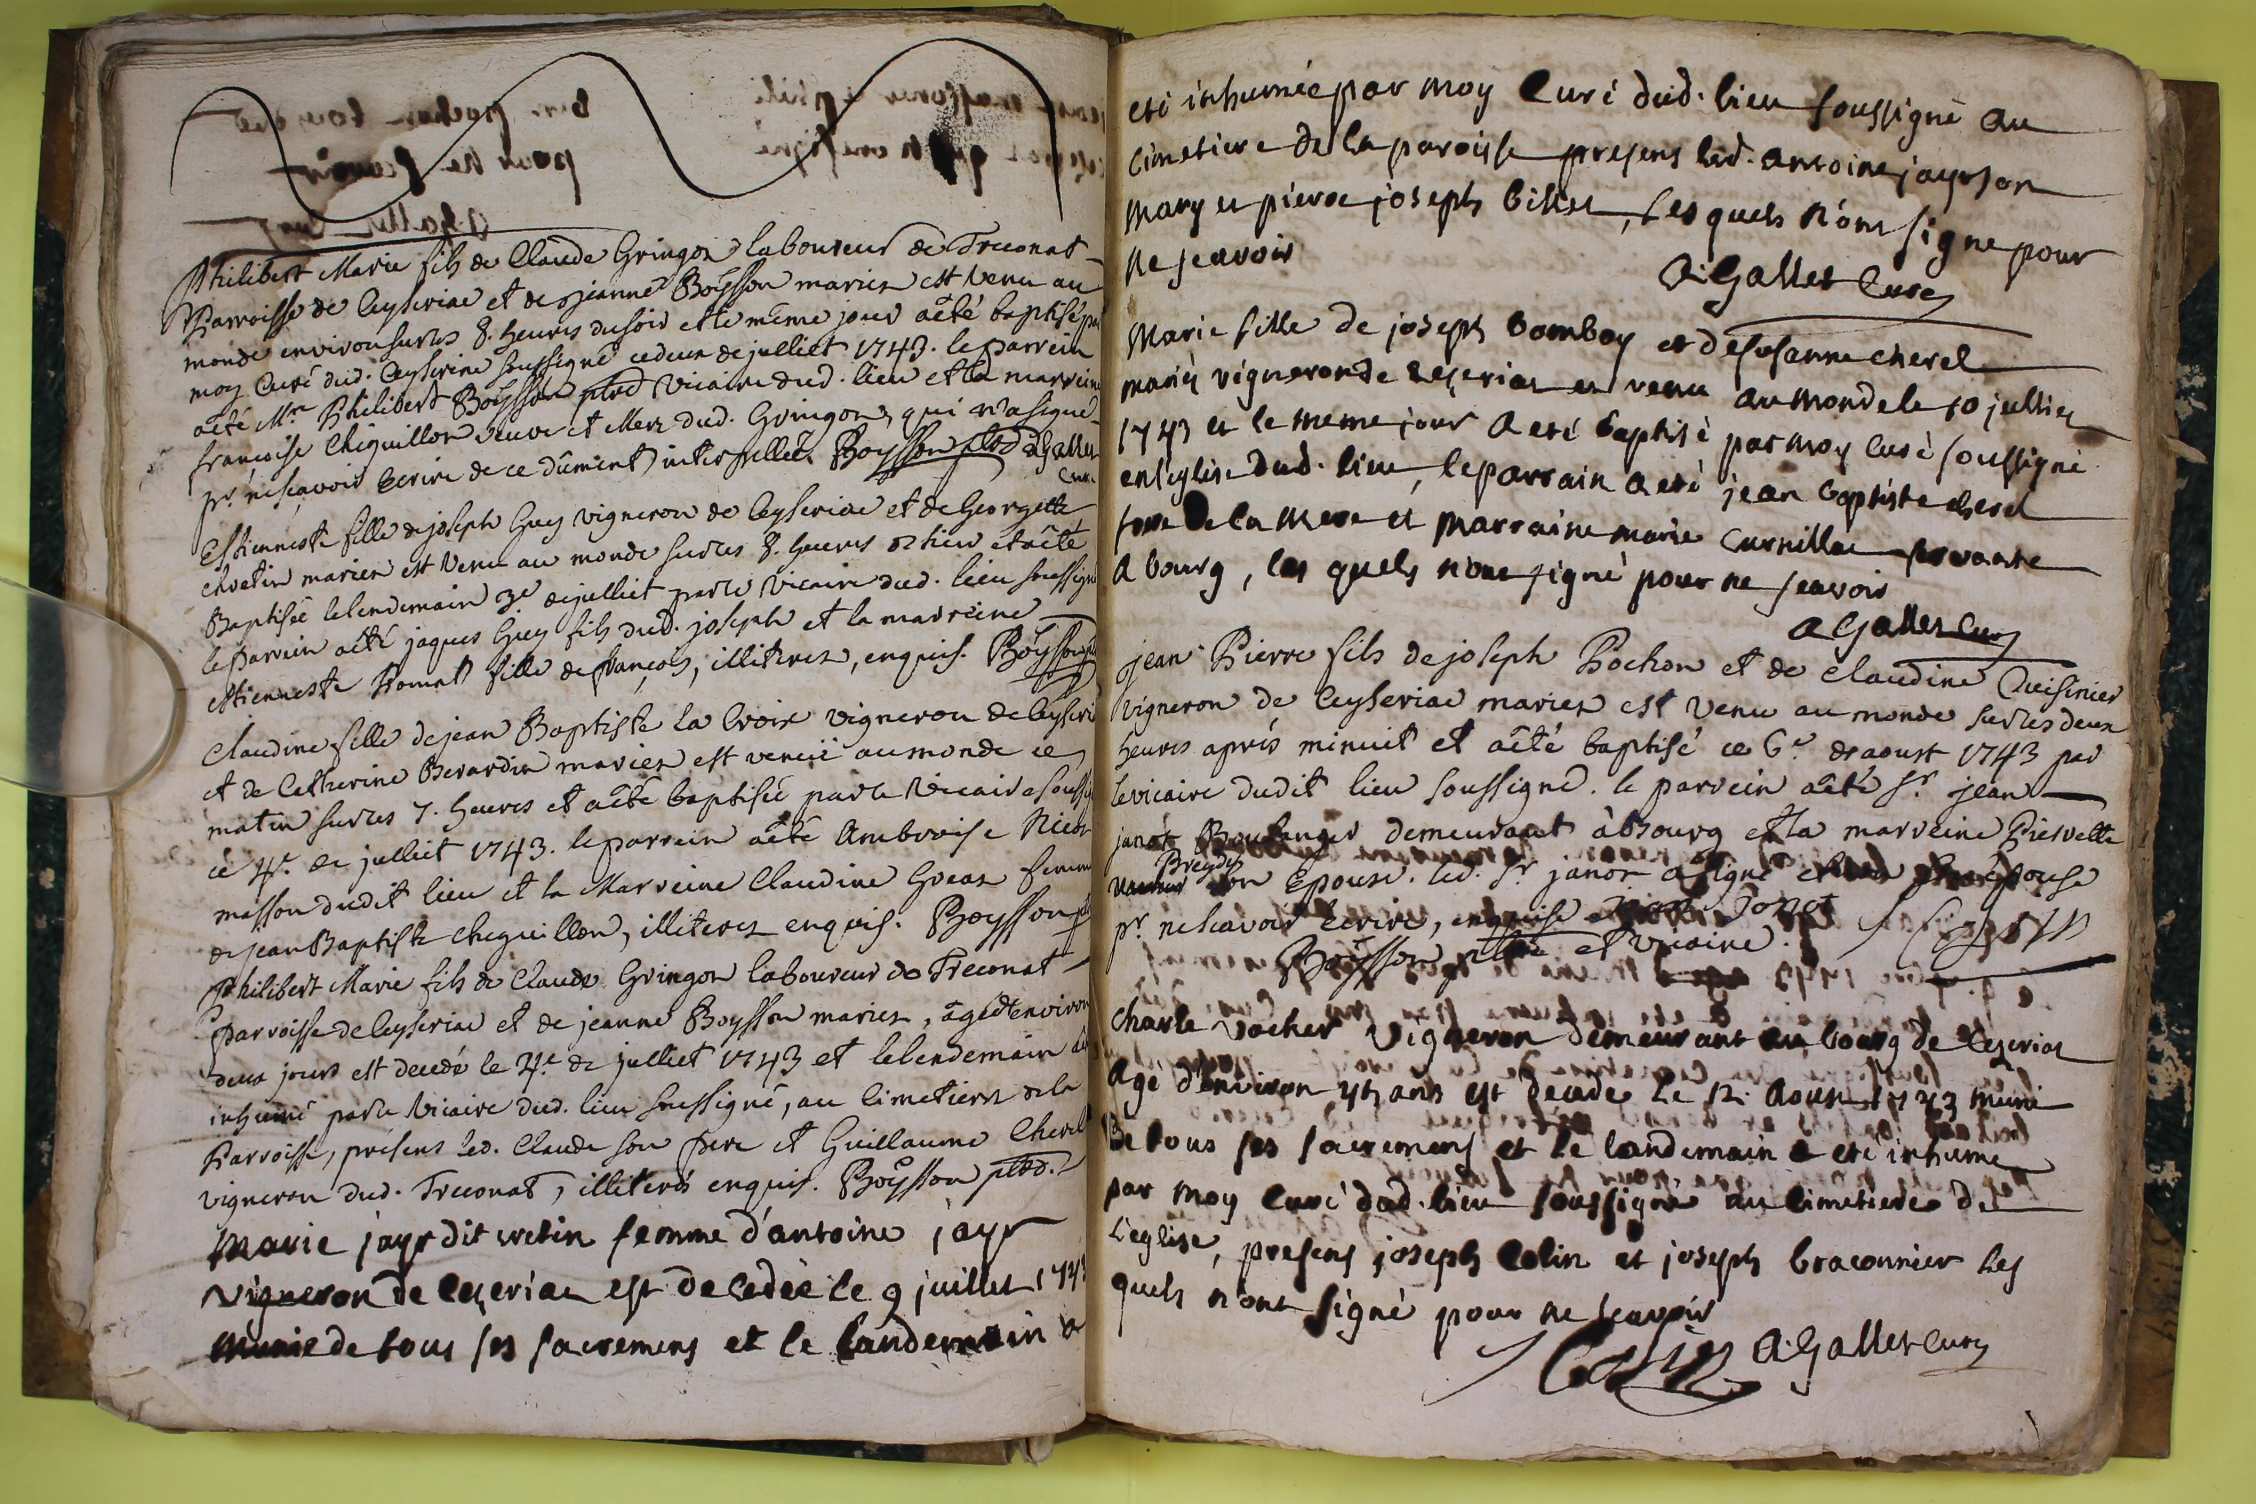 Philibert Marie fils de Claude Gringoz laboureur de Treconat
Parroisse de Ceyseriac et de Jeanne Boysson mariez est venu au
monde environ sur les 8. heures du soir et le même jour a êté baptisé par
moy Curé dud. Ceyserine soussigné ce deux de julliet 1743. le parrein
a êté Mre Philibert Boysson ptre vicaire dud. lieu et la marreine
francoise Chiguillon veuve et Mere dud. Gringoz, qui n'a signé
pr. ne sçavoir Ecrire de ce dûment interpellée. Boysson ptre A Gallet
Curé
Estiennette fille de joseph Guy vigneron de Ceyseriac et de Georgette
Chretin mariez est venu au monde sur les 8. heures et a êté
Baptisée le lendemain 3e de julliet par le vicaire dud. lieu soussigné
le parrein a êté jaques Guy fils dud. joseph et la marreine
estiennette fromat fille de françois, illiterez, enquis. Boysson
Claudine fille de jean Baptiste la Croix vigneron de Ceyseri
et de Catherine Berardin mariez est venüe au monde ce
matin sur les 7. heures et a êté baptisée par le vicaire soussig
ce 4e. de julliet 1743. le parrein a êté Ambroise Nicos
masson dudit lieu et la Marreine Claudine Goeas femme
de jean Baptiste Cheguillon, illiterez enquis. Boysson
Philibert Marie fils de Claude Gringoz laboureur de Treconat
parroisse de Ceyseriac et de jeanne Boysson mariez, âgé d'environ
deux jours est decedé le 4e. de julliet 1743 et le lendemain a
inhumé par le vicaire dud. lieu soussigné, au Cimetiere de la
Parroisse, présens led. Claude son pere et Guillaume Cherel
vigneron dud. Treconat, illiterés enquis. Boysson ptre.
Marie jayr dit cretin femme d'antoine jayr
vigneron de cezeriac est decedée le 9 juillet 1743
munie de tous ses sacremens et le landemain a
eté inhumée par moy Curé dud. lieu soussigné au
Cimetiere de la paroisse presens led. antoine jayr son
mary et pierre joseph billet, les quels n'ont signe pour
ne scavoir
A. Gallet Curé
Marie fille de joseph bomboy et de susanne cherel
mariés vigneron de ceseriac est venu au monde le 10 julliet
1743 et le meme jour a eté baptisé par moy curé soussigné
en l'eglise dud. lieu, le parrain a eté jean baptiste cherel
frere de la mere et marraine marie curnillac servante
a bourg, les quels n'ont signé pour ne scavoir
A Gallet Curé
jean Pierre fils de joseph Pochon et de Claudine Cuisinier
vigneron de Ceyseriac mariez est venu au monde sur les deux
heures aprés minuit et a êté baptisé ce 6e. de aoust 1743 par
le vicaire dudit lieu soussigné. le parrein a êté Sr. jean
janot Boulanger demeurant à bourg et la marreine Pierrette
son Epouse. led. Sr janot a signé et non son épouse
pr. ne scavoir Ecrire, enquise jean Janot
Boysson ptre et vicaire.
Charle vocher vigneron demeurant au bourg de Ceseriat
agé d'environ 45 ans est decedé le 12. Aoust 1743 muni
de tous ses sacremens et le landemain a eté inhumé
par moy Curé dud. lieu soussigné au cimetiere de
l'eglise, presens joseph Colin et joseph braconnier les
quels n'ont signé pour ne scavoir
A. Gallet Curé